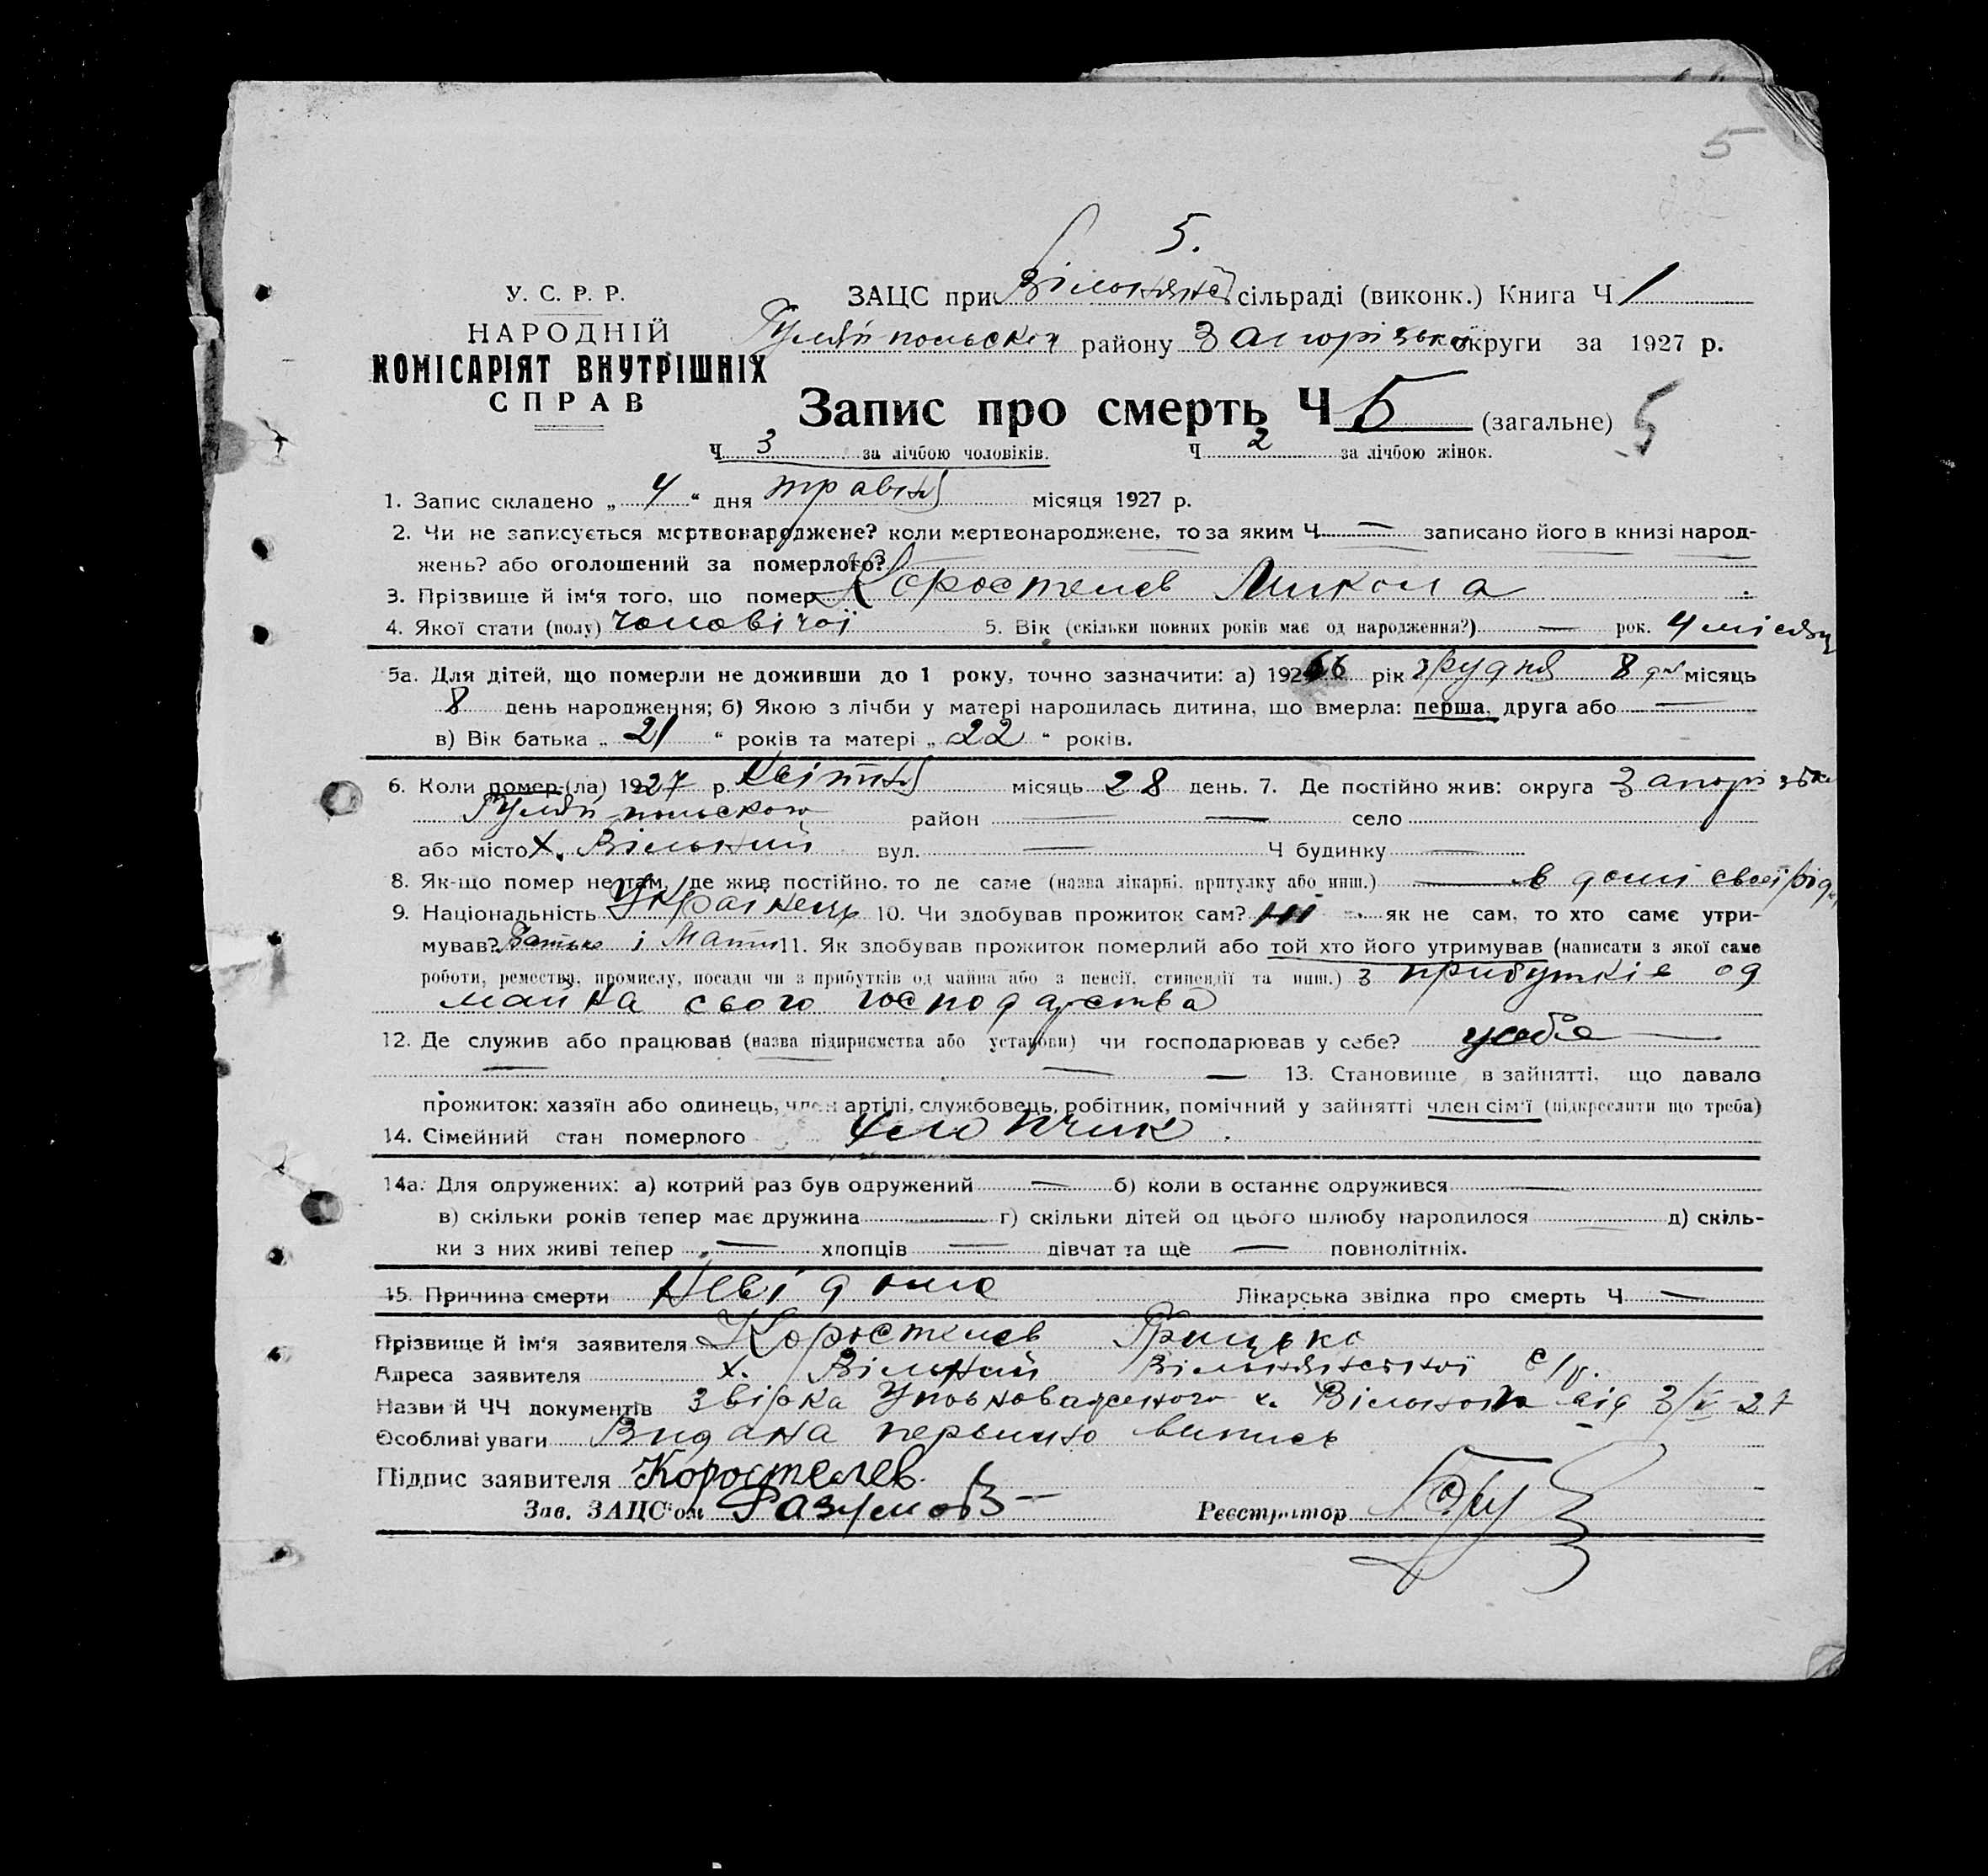 5
5.
У. С. Р. Р.
НАРОДНІЙ
КОМІСАРІЯТ ВНУТРІШНІХ
СПРАВ
ЗАЦС при сільраді (виконк.) Книга Ч 1
Гуляй польскої району Запорізької округи за 1927 р.
Запис про смерть Ч 5 (загальне) 5
Ч 3 за лічбою чоловіків. Ч 2 за лічбою жінок.
1. Запис складено „ 4 “ дня травня місяця 1927 р.
2. Чи не записується мертвонароджене? коли мертвонароджене, то за яким Ч — записано його в книзі народ-
жень? або оголошений за померлого?
3. Прізвище й ім'я того, що помер Коростелев Микола
4. Якої стати (полу) чоловічої 5. Вік (скільки повних років має од народження?) — рок. 4 місяці
5а. Для дітей, що померли не доживши до 1 року, точно зазначити: а) 1926 рік грудня 8 дня місяць
8 день народження; б) Якою з лічби у матері народилась дитина, що вмерла: перша, друга або —
в) Вік батька „ 21 “ років та матері „ 22 “ років.
6. Коли помер-(ла) 1927 р. квітня місяць 28 день. 7. Де постійно жив: округа Запорізька
Гуляй-польского район — — село
або місто х. Вільний вул. — Ч будинку —
8. Як-що помер не там, де жив постійно, то де саме (назва лікарні, притулку або инш.) — в домі своєї
9. Національність Українець 10. Чи здобував прожиток сам? ні як не сам, то хто саме утри-
мував? Батько і Мати 11. Як здобував прожиток померлий або той хто його утримував (написати з якої саме
роботи, ремества, промислу, посади чи з прибутків од майна або з пенсії, стипендії та инш.) з прибутків од
майна свого господарства
12. Де служив або працював (назва підприємства або установи) чи господарював у себе? у себе —
— — — 13. Становище в зайнятті, що давало
прожиток: хазяїн або одинець, член артілі, службовець, робітник, помічний у зайнятті член сім'ї (підкреслити що треба)
14. Сімейний стан померлого хлопчик.
14а. Для одружених: а) котрий раз був одружений — б) коли в останнє одружився —
в) скільки років тепер має дружина — г) скільки дітей од цього шлюбу народилося — д) скіль-
ки з них живі тепер — хлопців — дівчат та ще — повнолітніх.
15. Причина смерти Невідома Лікарська звідка про смерть Ч —
Прізвище й ім'я заявителя Коростелев Грицько
Адреса заявителя х. Вільний с/р.
Назви й ЧЧ документів Звірка Уповноваженого х. Вільного від 3/V-27
Особливі уваги Видана первинно випись
Підпис заявителя Коростелев.
Зав. ЗАЦС'ом Разумов
Реєстратор